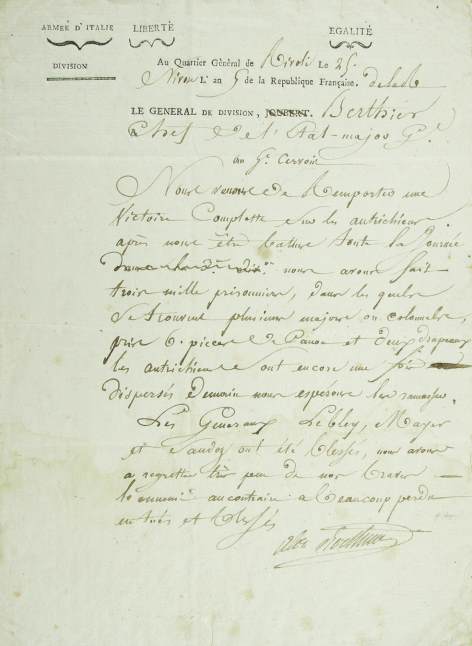 ARMÉE D'ITALIE LIBERTÉ EGALITÉ
DIVISION
Au Quartier Général de Rivoli Le 25
Nivose L'an 5 de la République Française,
LE GENERAL DE DIVISION, JOUBERT. Berthier
Chef de l'Etat-major Gl
au Gl Cervoni
Nous venons de Remporter une
Victoire Complette Sur les autrichiens
après nous être battus toute la Journée
nous avons fait
trois mille prisonniers, dans les quels
Se trouvent plusieurs majors ou colonels,
pris 6. pieces de Canon et deux drapeaux
les autrichiens Sont encore une fois
dispersés demain nous espérons les ramasser.
Les Généraux Lebley, Mayer
et Sandoz ont été blessés, nous avons
a regretter très peu de nos braves
l'ennemi au contraire a beaucoup perdu
en tués et blessés
Alex Berthier